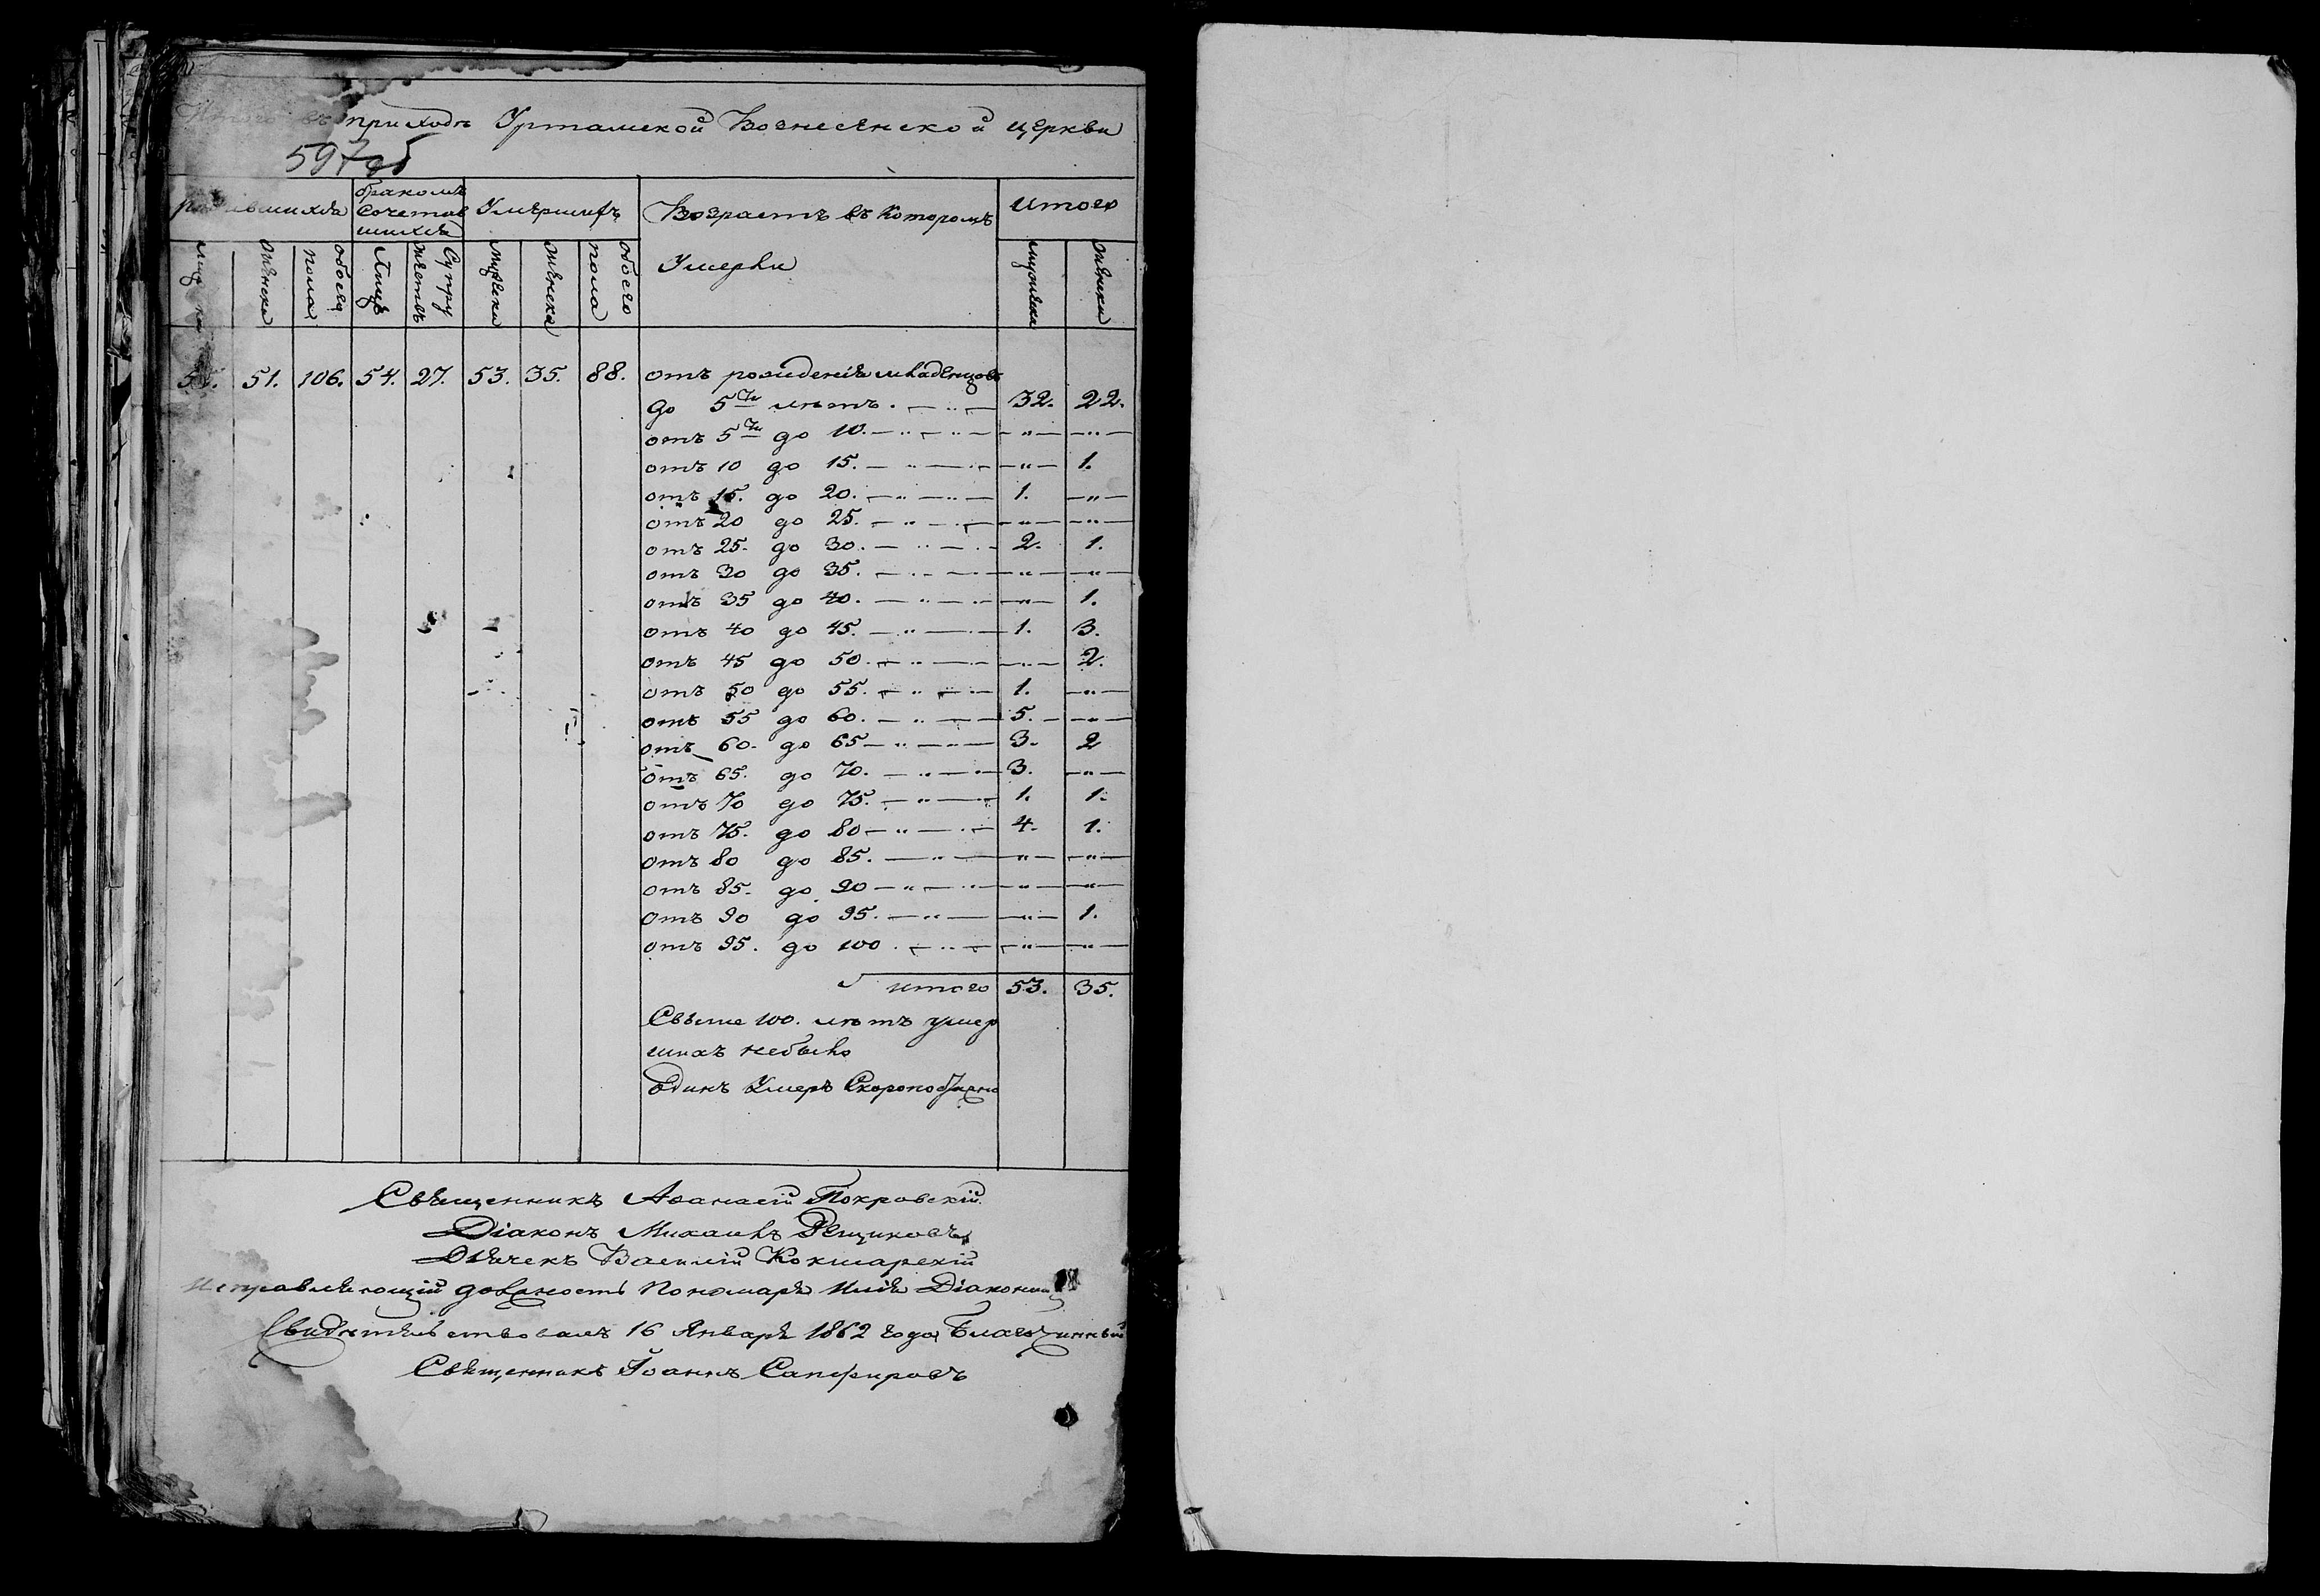 Итого въ приходѣ Уртамской Вознесенской церкви
597 об
родившихся
бракомъ сочетавшихся
Умершихъ
Возрастъ въ которомъ Умерли
итого
женска
обоего пола
Лицъ
Супружествъ
мужска
женска
обоего пола
мужеска
женска
51. 106. 54. 27. 53. 35. 88. отъ рожденія младенцовъ
до 5ти лѣтъ. — „ — 32. 22.
отъ 5ти до 10. — „ — „ — „ — — „ —
отъ 10 до 15. — „ — — „ — 1.
отъ 15. до 20. — „ — 1. — „ —
отъ 20 до 25. — „ — — „ — — „ —
отъ 25. до 30. — „ — 2. 1.
отъ 30 до 35. — „ — — „ — — „ —
отъ 35 до 40. — „ — — „ — 1.
отъ 40 до 45. — „ — 1. 3.
отъ 45 до 50. — „ — — „ — 2.
отъ 50 до 55. — „ — 1. — „ —
отъ 55 до 60. — „ — 5. — „ —
отъ 60. до 65 — „ — 3. 2
отъ 65. до 70. — „ — 3. — „ —
отъ 70 до 75. — „ — 1. 1.
отъ 75. до 80 — „ — 4. 1.
отъ 80 до 85. — „ — — „ — — „ —
отъ 85. до 90 — „ — — „ — — „ —
отъ 90 до 95. — „ — — „ — 1.
отъ 95. до 100. — „ — — „ — — „ —
итого 53. 35.
Свыше 100. лѣтъ умер
шихъ небыло
Одинъ Умеръ Скоропостижно
Священникъ Аѳанасій Покровскій.
Діаконъ Михаилъ Рещиковъ
Дьячекъ Василій Кокшарскій
Исправляющій должность Пономаря Илія Діаконовъ
Свидѣтельствовалъ 16 Января 1862 года Благочинный
Священникъ Іоаннъ Сапфировъ